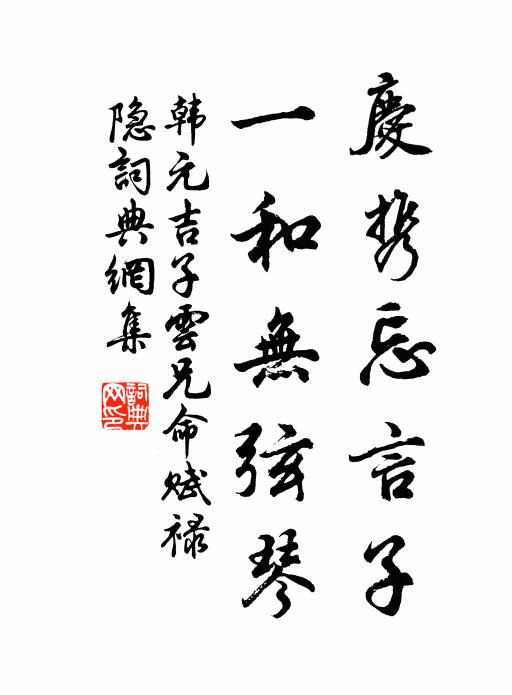 慶携忘言子
一和無弦琴
韩元吉子雲兄命赋禄
隐詞典網集
詞典網印